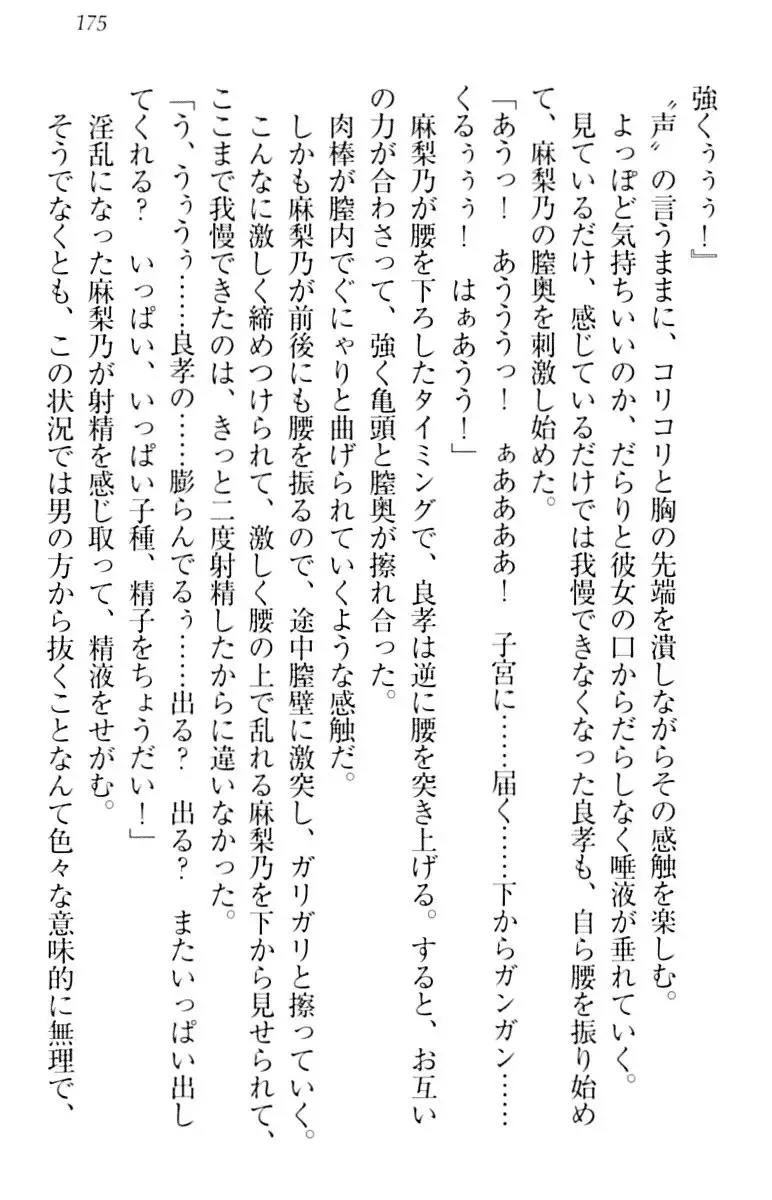 175
強くぅぅぅ！』
〝声〟の言うままに、コリコリと胸の先端を潰しながらその感触を楽しむ。
よっぽど気持ちいいのか、だらりと彼女の口からだらしなく唾液が垂れていく。
見ているだけ、感じているだけでは我慢できなくなった良孝も、自ら腰を振り始め
て、麻梨乃の膣奥を刺激し始めた。
「あうっ！　あうううっ！　ぁああああ！　子宮に……届く……下からガンガン……
くるぅぅぅ！　はぁあうう！」
麻梨乃が腰を下ろしたタイミングで、良孝は逆に腰を突き上げる。すると、お互い
の力が合わさって、強く亀頭と膣奥が擦れ合った。
肉棒が膣内でぐにゃりと曲げられていくような感触だ。
しかも麻梨乃が前後にも腰を振るので、途中膣壁に激突し、ガリガリと擦っていく。
こんなに激しく締めつけられて、激しく腰の上で乱れる麻梨乃を下から見せられて、
ここまで我慢できたのは、きっと二度射精したからに違いなかった。
「う、うぅうぅ……良孝の……膨らんでるぅ……出る？　出る？　またいっぱい出し
てくれる？　いっぱい、いっぱい子種、精子をちょうだい！」
淫乱になった麻梨乃が射精を感じ取って、精液をせがむ。
そうでなくとも、この状況では男の方から抜くことなんて色々な意味的に無理で、